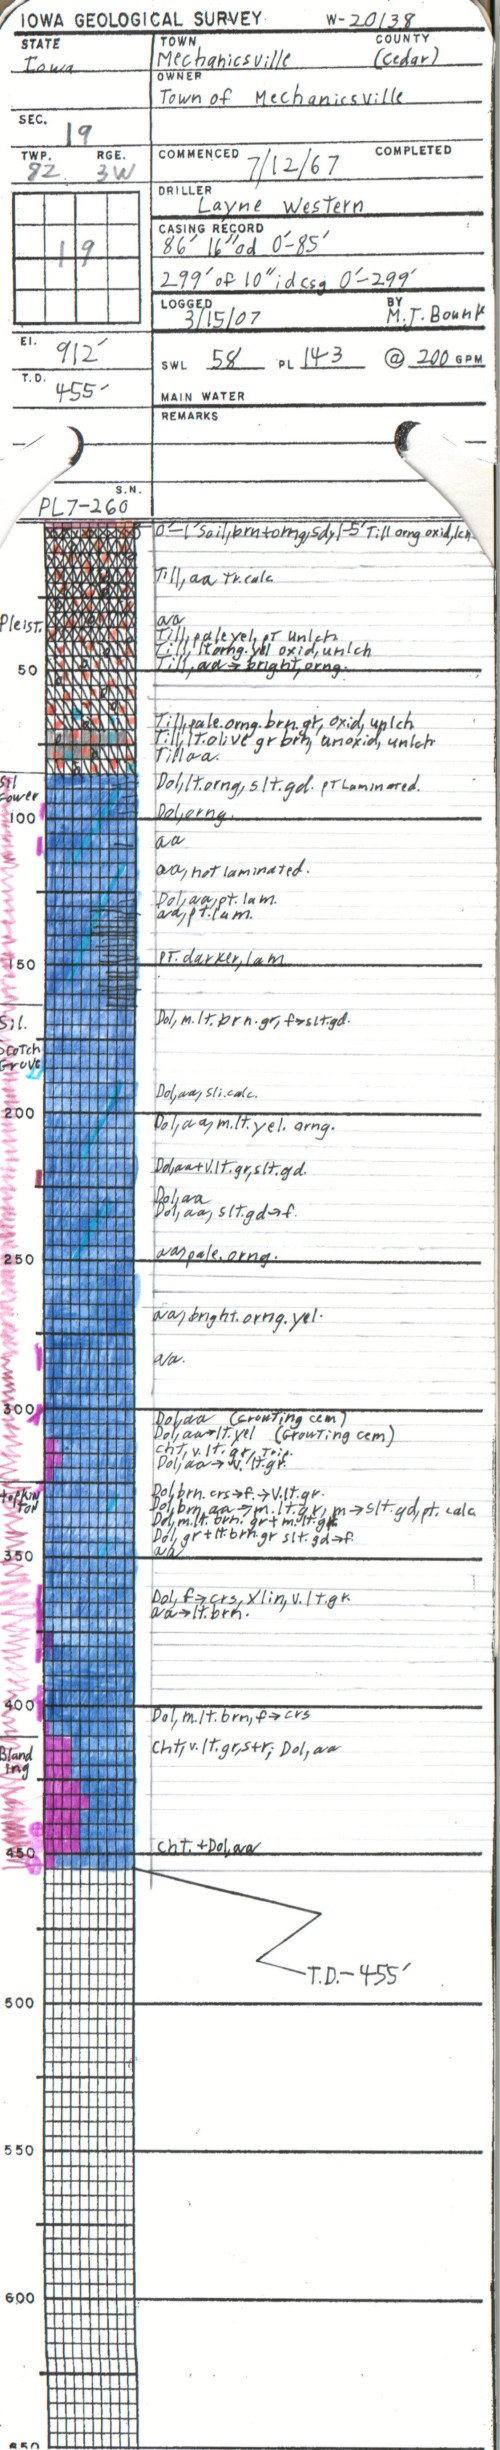 IOWA GEOLOGICAL SURVEY W-20138
STATE
Iowa
TOWN COUNTY
Mechanicsville (Cedar)
OWNER
Town of Mechanicsville
SEC.
19
TWP. RGE.
82 3W
COMMENCED 7/12/67 COMPLETED
DRILLER
Layne Western
19
CASING RECORD
86' 16"od 0'-85'
299' of 10" id csg 0'-299'
LOGGED BY
3/15/07 M.J. Bounk
El.
912'
SWL 58 PL 143 @ 200 GPM
T.D.
455'
MAIN WATER
REMARKS
S.N.
PL7-260
0'-1' Soil, brn+orng, sdy, 1-5' Till orng oxid, lch
Till, aa tr. calc
Pleist.
aa
Till, pale yel, pt unlch
Till, lt orng. yel oxid, unlch
Till, aa → bright, orng.
50
Till, pale. orng. brn. gr, oxid, unlch
Till, lt. olive gr brn, unoxid, unlch
Till aa.
Sil
Lower
Dol, lt. orng, slt. gd. pt Laminated.
100
Dol, orng.
aa
aa, not laminated.
Dol, aa, pt. lam.
aa, pt. lam.
150
pt. darker, lam
Sil.
Scotch
Grove
Dol, m. lt. brn. gr, f→slt. gd.
Dol, aa, sli. calc.
200
Dol, aa, m. lt. yel. orng.
Dol, aa + v. lt. gr, slt. gd.
Dol, aa
Dol, aa, slt. gd→f.
250
aa, pale. orng.
aa, bright. orng. yel.
aa.
300
Dol, aa (Grouting cem)
Dol, aa→lt. yel (Grouting cem)
Cht, v. lt. gr, Trip.
Dol, aa→v. lt. gr.
Hopkin
ton
Dol, brn. crs→f.→v. lt. gr.
Dol, brn, aa→m. lt. gr, m→slt. gd, pt. calc
Dol, m. lt. brn. gr + m. lt. gr
Dol, gr + lt. brn. gr slt. gd→f.
350
aa
Dol, f→crs, Xlin, v. lt. gr.
aa→lt. brn.
400
Dol, m. lt. brn, f→crs
Bland
ing
Cht, v. lt. gr, s+r; Dol, aa
450
Cht. + Dol, aa
T.D.-455'
500
550
600
650